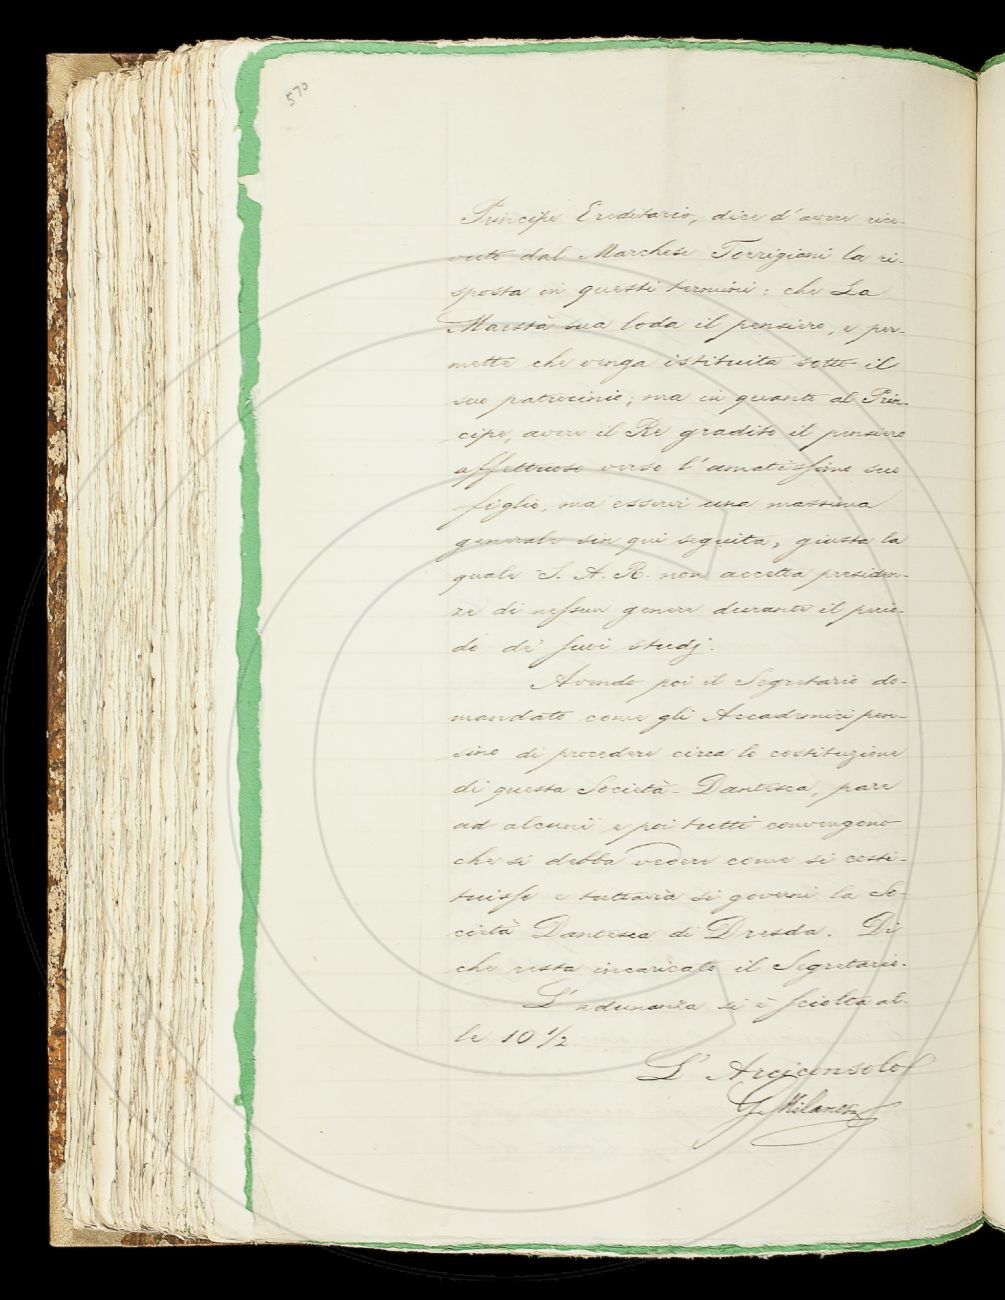 570
Principe Ereditario, dice d'avere rice-
vuto dal Marchese Torrigiani la ri-
sposta in questi termini: che La
Maestà sua loda il pensiero, e per-
mette che venga istituita sotto il
suo patrocinio; ma in quanto al Prin-
cipe, avere il Re gradito il pensiero
affettuoso verso l'amatissimo suo
figlio, ma esservi una massima
generale sin qui seguita, giusta la
quale S. A. R. non accetta presiden-
ze di nessun genere durante il perio-
do de' suoi studj.
Avendo poi il Segretario do-
mandato come gli Accademici pen-
sino di procedere circa la costituzione
di questa Società Dantesca, pare
ad alcuni e poi tutti convengono
che si debba vedere come si costi-
tuisse e tuttavia si governi la So-
cietà Dantesca di Dresda. Di
che resta incaricato il Segretario.
L'adunanza si è sciolta al-
le 10 1/2
L'Arciconsolo
G. Milanesi